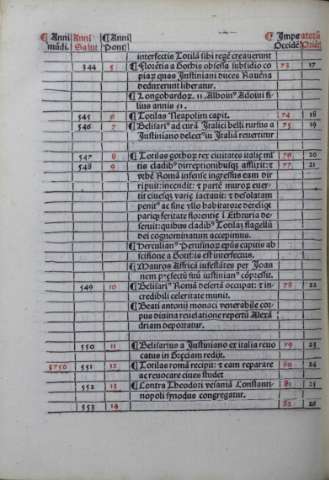 Anni mūdi. Anni Salut. Anni Pont. Impe ratorū Occidē Oriēt.
interfectis Totilā sibi regē creaverunt
544 5 Florētia a Gothis obsessa subsidio co 73 17
piarū quas Justiniani duces Ravēna
deduxerunt liberatur.
Longobardoꝝ. 11. Alboinꝰ fi
lius annis
545 6 Totilas Neapolim capit. 74 18
546 7 Belisariꝰ ad curā Italici belli rursus a 75 19
Justiniano delectꝰ in Italiā revertitur
547 8 Totilas gothoꝝ rex civitates italie ml 76 20
548 9 tis cladibꝰ direptionibusq; afflixit: 77 21
urbē Romā infense ingressus eam di
ripuit: incendit: partē muroꝝ ever
tit civesq; varie iactavit: desolatam
penitꝰ ac sine ullo habitatore
pariq; feritate florentie Ethruria de
seruit: quibus cladibꝰ Totilas flagellū
dei cognominatum accepimus.
Herculianꝰ Perusinoꝝ epūs capitis ab
scisione a Gothis est interfectus.
Mauros Affricā infestātes per Joan
nem p̄fectū suū iustinianꝰ cōpescuit.
549 10 Belisariꝰ Romā desertā occupat: in 78 22
credibili celeritate munit.
Beati antonij monaci venerabile cor
pus divina revelatione repertū Alexā
driam deportatur.
550 11 Belisarius a Justiniano ex italia revo 79 23
catus in Greciam redijt.
5750 551 12 Totilas romā recipit: eam reparare 80 24
ac revocare cives studet
552 13 Contra Theodori vesaniā Constanti- 81 25
nopoli synodus congregatur.
553 14 82 26